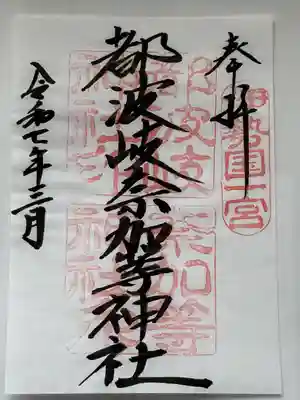 奉拝
伊勢国一宮
都波岐奈加等神社
令和七年三月